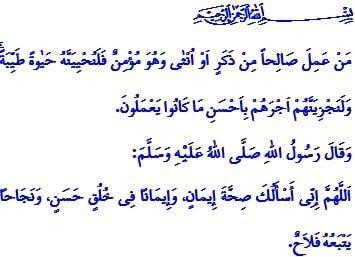 بِسْمِ اللهِ الرَّحْمٰنِ الرَّحِيمِ
مَنْ عَمِلَ صَالِحاً مِنْ ذَكَرٍ اَوْ اُنْثٰى وَهُوَ مُؤْمِنٌ فَلَنُحْيِيَنَّهُ حَيٰوةً طَيِّبَةً
وَلَنَجْزِيَنَّهُمْ اَجْرَهُمْ بِاَحْسَنِ مَا كَانُوا يَعْمَلُونَ.
وَقَالَ رَسُولُ اللهِ صَلَّى اللهُ عَلَيْهِ وَسَلَّمَ:
اَللّٰهُمَّ اِنِّى اَسْأَلُكَ صِحَّةَ اِيمَانٍ، وَاِيمَانًا فِى خُلُقٍ حَسَنٍ، وَنَجَاحاً
يَتْبَعُهُ فَلَاحٌ.